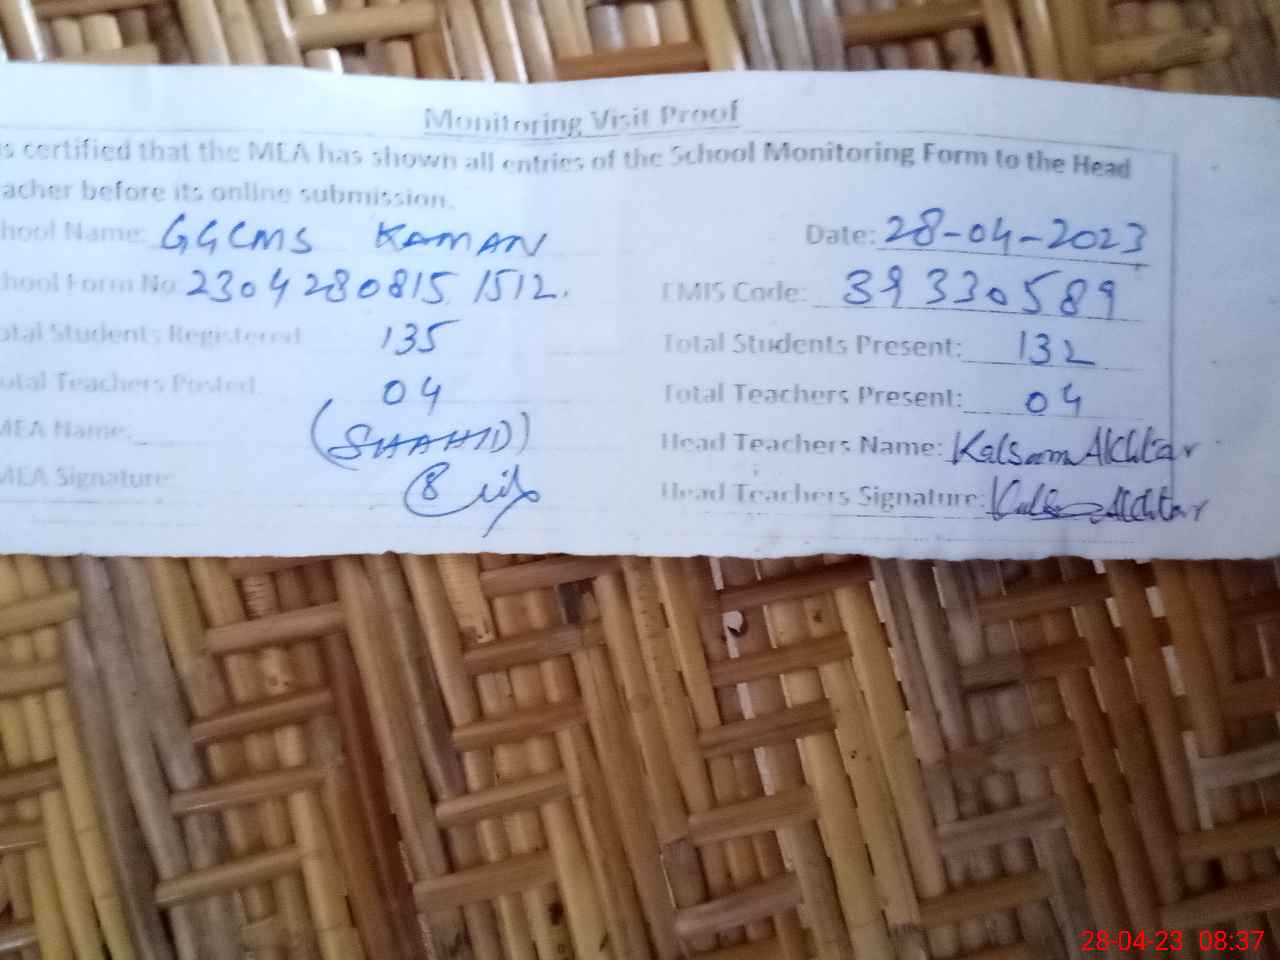 Monitoring Visit Proof
s certified that the MEA has shown all entries of the School Monitoring Form to the Head
acher before its online submission.
hool Name: GGCMS KAMAN Date: 28-04-2023
hool Form No 2304280815 1512. EMIS Code: 39330589
otal Students Registered 135 Total Students Present: 132
otal Teachers Posted 04 Total Teachers Present: 04
MEA Name: (SHAHID) Head Teachers Name: Kalsoom Akhtar
MEA Signature Head Teachers Signature: Akhtar
28-04-23 08:37